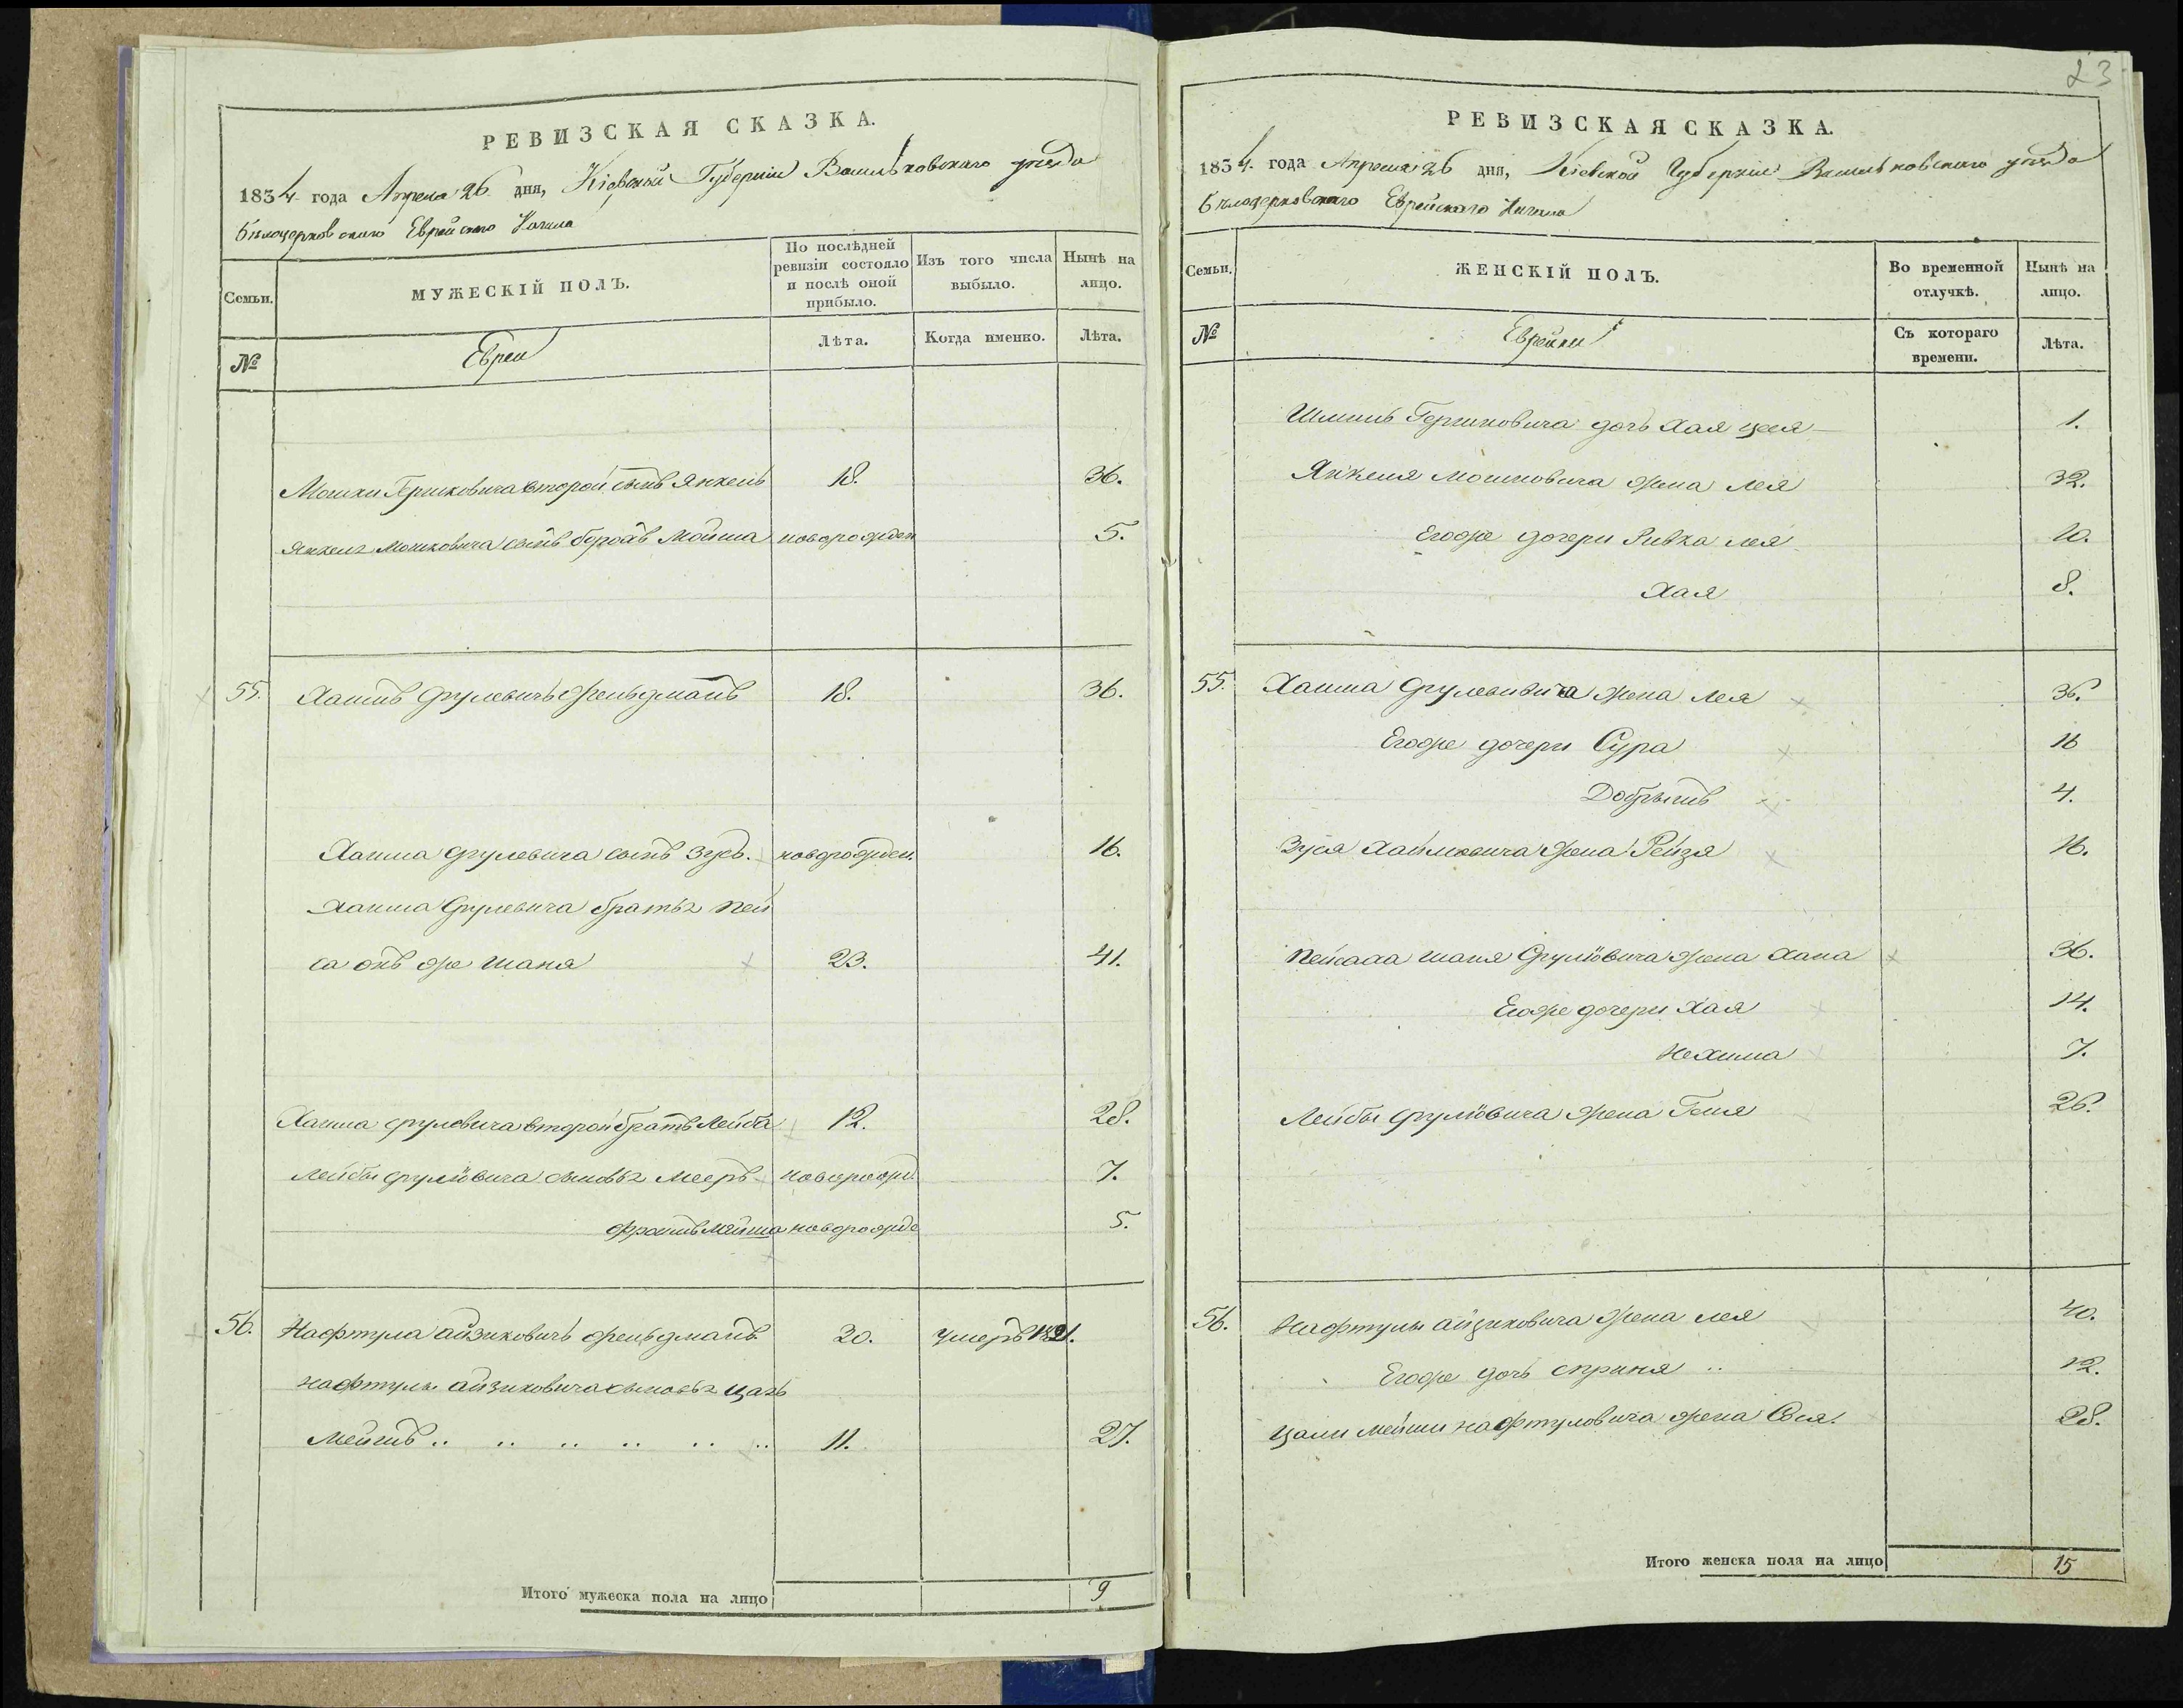 РЕВИЗСКАЯ СКАЗКА.
1834 года Апреля 26 дня, Кіевской Губерніи Васильковскаго уезда
Белоцерковскаго Еврейскаго Кагала
Семьи.
МУЖЕСКІЙ ПОЛЪ.
По послѣдней ревизіи состояло и послѣ оной прибыло.
Изъ того числа выбыло.
Нынѣ на лицо.
№
Евреи
Лѣта.
Когда именно.
Лѣта.
Мошки Гершковича второй сынъ Янкель 18. 36.
Янкеля Мошковича сынъ борохъ Мойша новорожден 5.
55. Хаимъ Срулевичъ Фельдманъ 18. 36.
Хаима Срулевича сынъ Зусь. новорожден. 16.
Хаима Срулевича братья Пей
са онъ же Шаня 23. 41.
Хаима Срулевича второй братъ Лейба 12. 28.
Лейбы Срулёвича сыновья Мееръ новорожд. 7.
Фроимъ Мейша новорожде 5.
56. Нафтула айзиковичъ Фельдманъ 20. умеръ 1821.
Нафтулы айзиковича сыновья Цаль
Мейшъ .. .. .. .. .. .. 11. 27.
Итого мужеска пола на лицо 9
23
РЕВИЗСКАЯ СКАЗКА.
1834. года Апреля 26 дня, Кіевской Губерніи Васильковскаго уезда
Белоцерковскаго Еврейскаго Кагала
Семьи.
ЖЕНСКІЙ ПОЛЪ.
Во временной отлучкѣ.
Нынѣ на лицо.
№
Еврейки
Съ котораго времени.
Лѣта.
Гершковича дочь Хая 1.
Янкеля Мошковича жена Лея 32.
Егоже дочери Ривка Лея 10.
Хая 8.
55. Хаима Срулевича жена Лея 36.
Егоже дочери Сура 16
Добрышъ 4.
Зуся Хаймовича жена Рейзя 16.
Пейсаха Шаня Срулёвича жена Хана 36.
Егоже дочери Хая 14.
Нехима 7.
Лейбы Срулёвича жена Геня 26.
56. Нафтулы айзиковича жена Лея 40.
Егоже дочь Сприня .. 12.
Цали Мейши Нафтуловича жена Сося. 28.
Итого женска пола на лицо 15